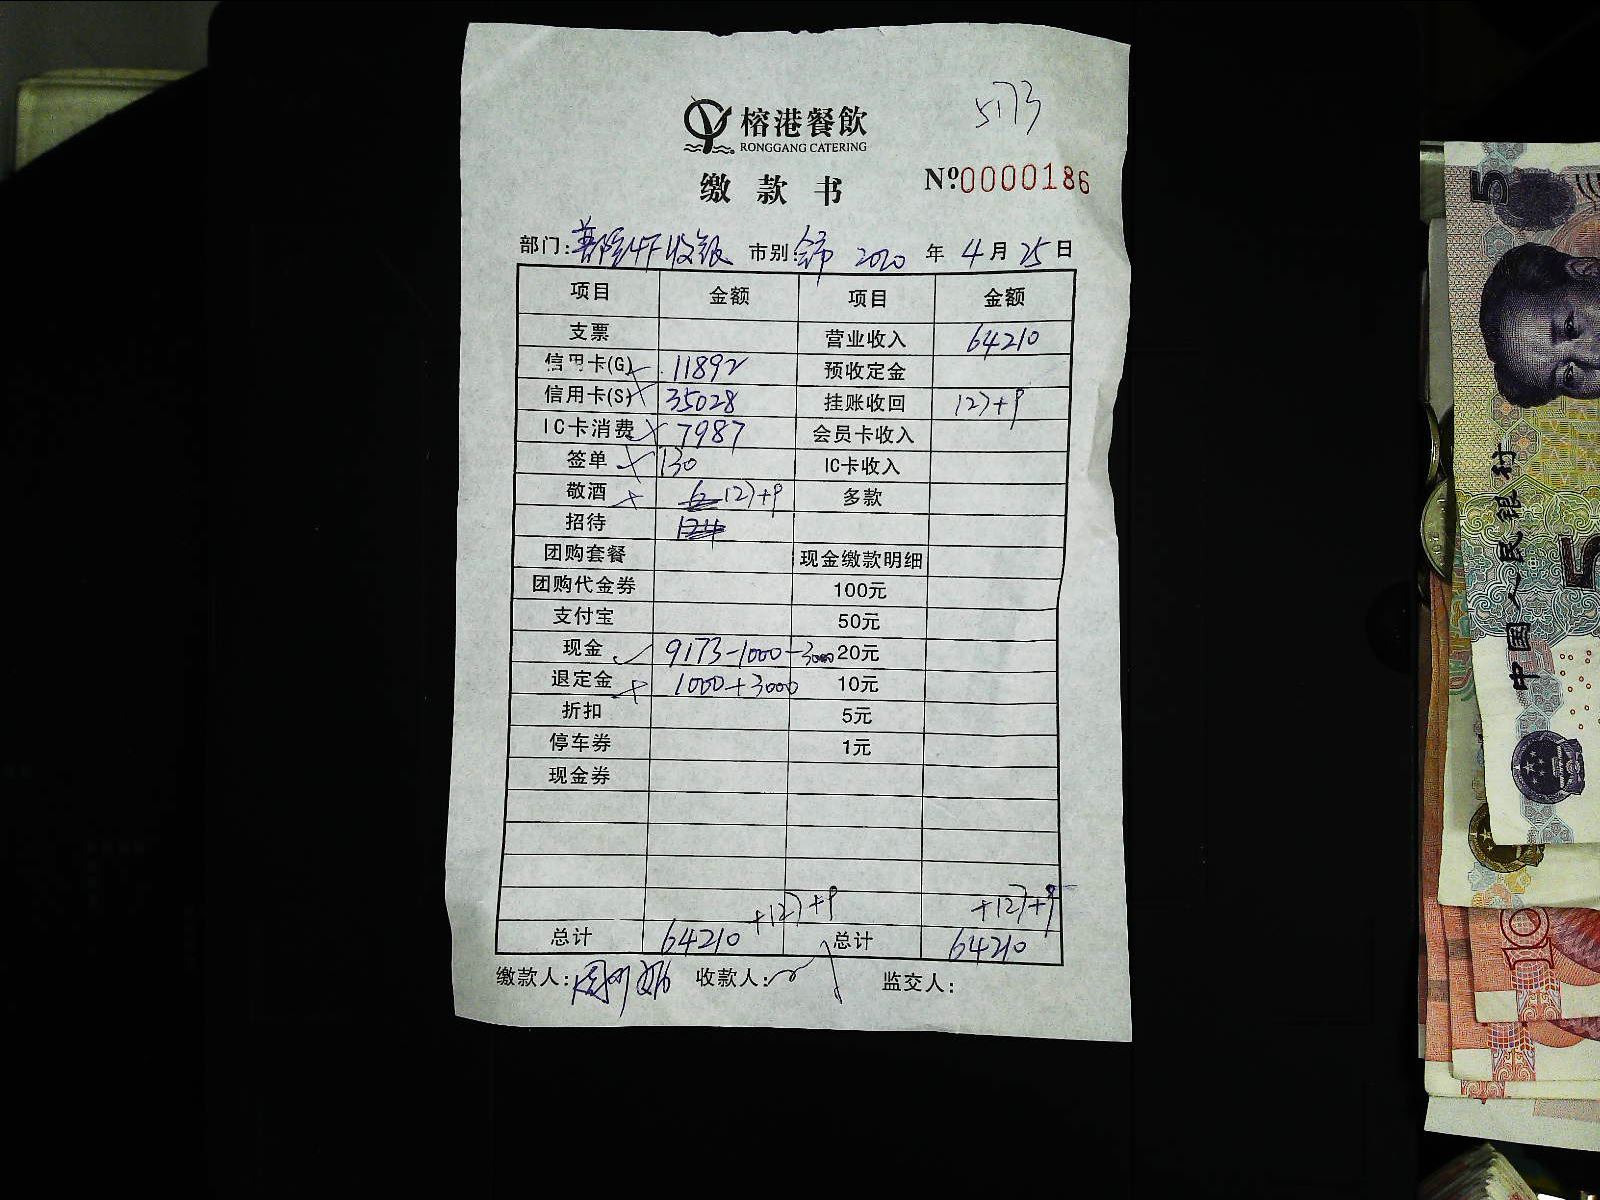 5173
榕港餐飲
RONGGANG CATERING
缴款书
Nº:0000186
部门: 4F收银 市别: 2020 年 4 月 25 日
项目 金额 项目 金额
支票 营业收入 64210
信用卡(G) 11892 预收定金
信用卡(S) 35028 挂账收回 127+9
IC卡消费 7987 会员卡收入
签单 130 IC卡收入
敬酒 127+9 多款
招待
团购套餐 现金缴款明细
团购代金券 100元
支付宝 50元
现金 9173-1000-3000 20元
退定金 1000+3000 10元
折扣 5元
停车券 1元
现金券
+127+9 +127+9
总计 64210 总计 64210
缴款人: 收款人: 监交人:
5
中国人民银行
5
10